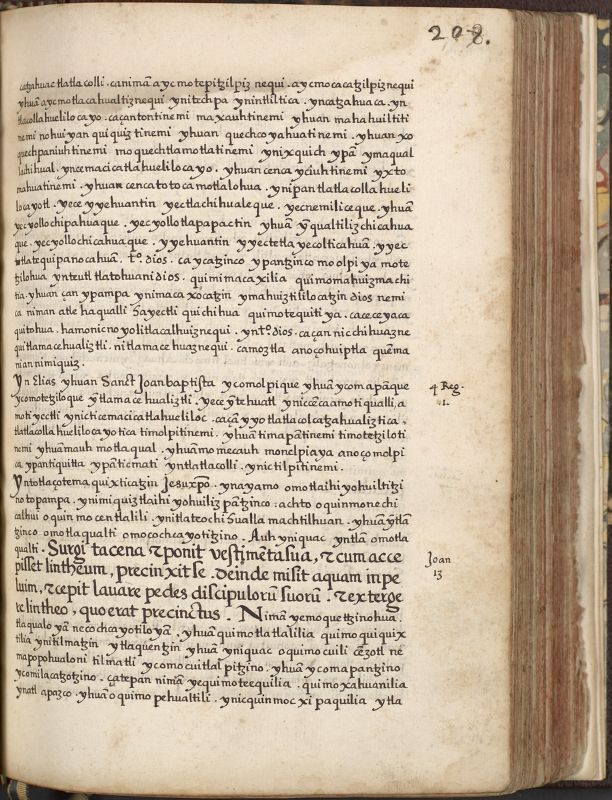 208.
catzahuac tlatlacolli . canimā aycmotepitzilpiz nequi . aycmocacatzilpiz nequi
yhuā aycmotlacahualtiznequi ynitechpa ynintliltica . yncatzahuaca . yn
tlacollahuelilocayo . caçantontinemi maxauhtinemi yhuan mahahuiltiti
nemi nohuiyan quiquiztinemi yhuan quechcoyahuatinemi . yhuan xo
quechpaniuhtinemi moquechtlamotlatinemi ynixquich ypā ymaqual
lultihual . yncemacicatlahuelilocayo . yhuan cenca yciuhtinemi yxto
mahuatinemi . yhuan cenca totoca motlalohua . ynipan tlatlacollahueli
locayotl . yece yyehuantin yectlachihualeque . yecnemiliceque . yhuā
yecyollochipahuaque . yecyollotlapapactin yhuā yqualtilizchicahua
que . yecyollochicahuaque . yyehuantin yyectetlayecolticahuā . yyec
tlatequipanocahuā . tto. dios . ca ycatzinco ypantzinco moolpiya mote
tzilohua ynteutl tlatohuani dios . quimimacaxilia quimomahuizmachi
tia . yhuan çan ypampa ynimacaxocatzin ymahuiztililocatzin dios nemi
ca niman atle haqualli Sayectli quichihua quimotequitiya . caceceyaca
quitohua . hamonicnoyolitlacalhuiznequi . yntto. dios . caçan nicchihuazne
qui tlamacehualiztli . nitlamacehuaznequi . camoztla anoçohuiptla quēma
nian nimiquiz .
Yn Elias yhuan Sanct Joan baptista ycomolpique yhuā ycomapāque
4 Reg.
1.
ycomotetziloque ytlamacehualiztli . yece yntehuatl yniccēcaamotiqualli, a
motiyectli ynicticemacicatlahueliloc . caçā yyotlatlacolcatzahualiztica ,
tlatlacollahuelilocayotica timolpitinemi . yhuan timapātinemi timotetziloti
nemi yhuāmauh motlaqual . yhuāmomecauh monelpiaya anoçomolpi
ca ypantiquitta ypāticmati yntlatlacolli . ynictilpitinemi .
Yntotlaçotemaquixticatzin Jesuxpō . ynayamo omotlaihiyohuiltitzi
notopampa . ynimiquiztlaihiyohuiliz pātzinco : achto oquinmonechi
calhui oquinmocentlalili . ynitlateochiSualla machtilhuan . yhuā ytlā
tzinco omotlaqualti omocochcayotitzino . Auh yniquac yntlā omotla
qualti . Surgi tacena & ponit vestimēta sua, & cum acce
pisset lintheum, precinxit se . deinde misit aquam in pe
Joan
13
luim, & cepit lauare pedes discipulorū suorū . & exterge
re lintheo , quo erat precinctus . Nimā yemoquetztzinohua .
tlaqualoyān necochcayotiloyān . yhuā quimotlatlalilia quimoquiquix
tilia ynitilmatzin ytlaquentzin yhuā yniquac oquimocuili cēzotl ne
mapopohualoni tilmatli ycomocuitlalpitzino . yhuā ycomapantzino
ycomilacatzotzino . çatepan nimā yequimoteequilia . quimoxahuanilia
ynatl apazco . yhuā oquimopehualtili . ynicquinmocxipaquilia ytla